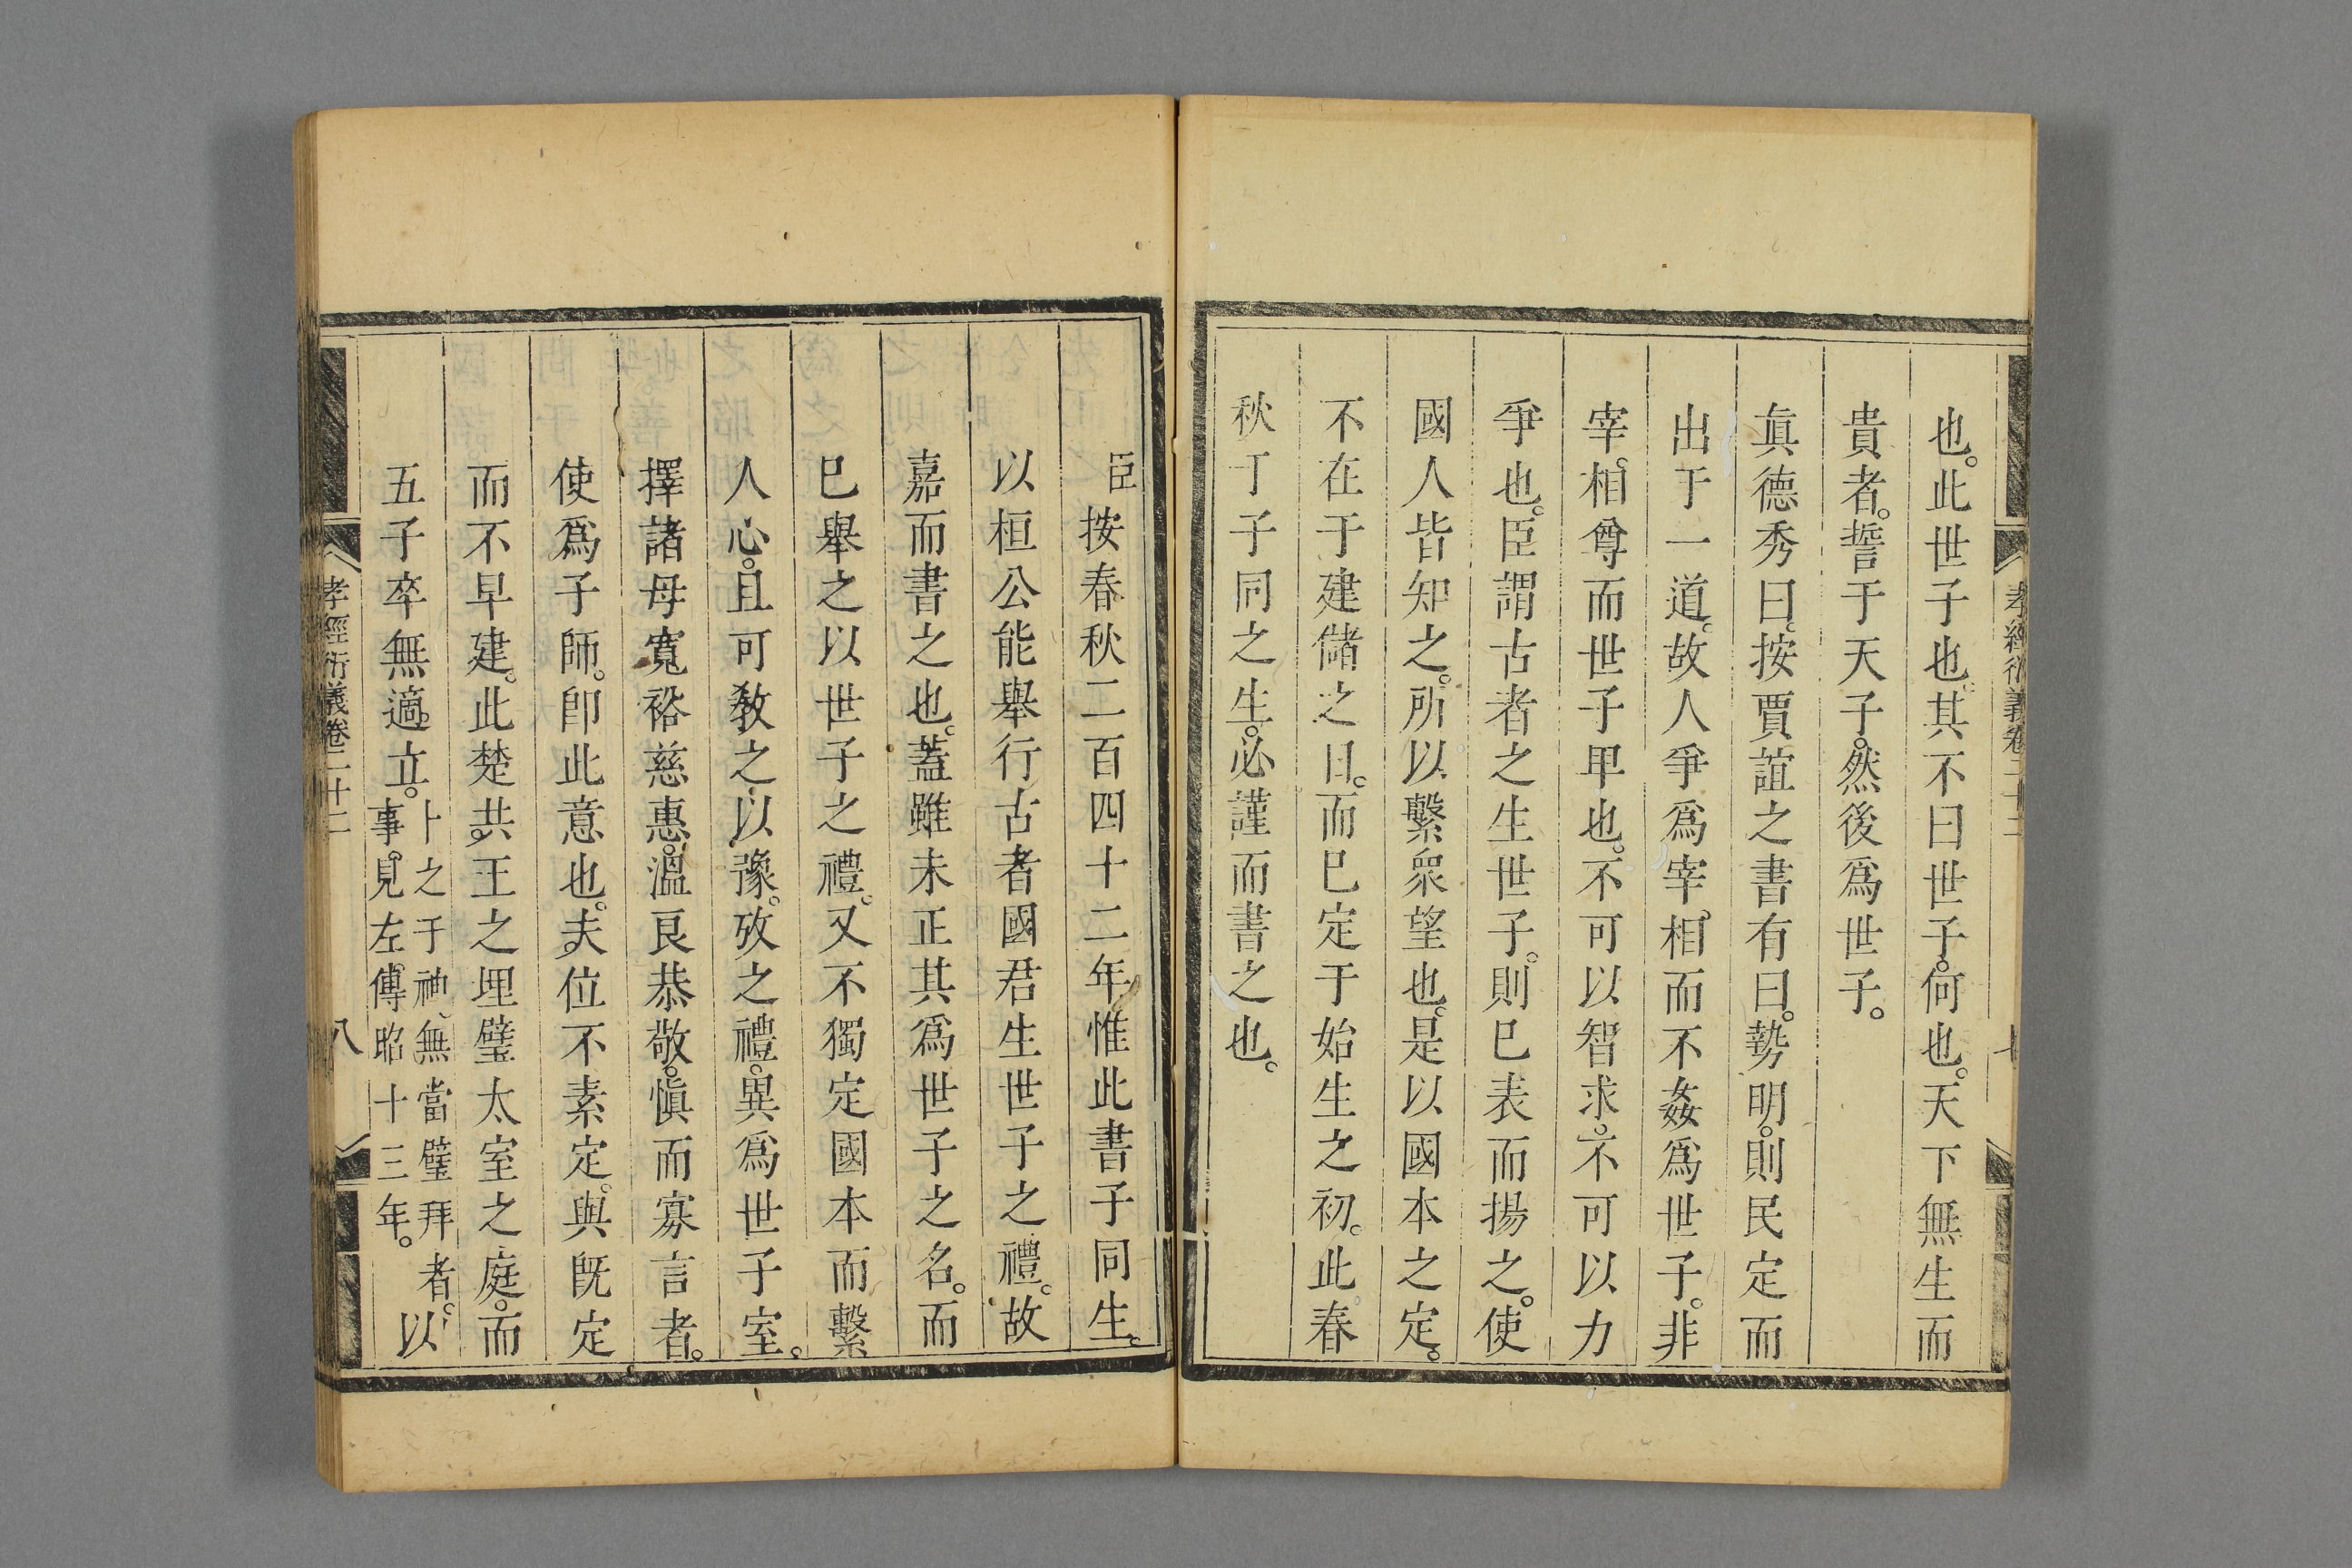 孝經衍義卷二十二
七
也。此世子也。其不曰世子。何也。天下無生而
貴者。誓于天子。然後爲世子。
眞德秀曰。按賈誼之書有曰。勢明。則民定而
出于一道。故人爭爲宰。相而不姦爲世子。非
宰。相尊而世子𤰞也。不可以智求。不可以力
爭也。臣謂古者之生世子。則已表而揚之。使
國人皆知之。所以繫衆望也。是以國本之定。
不在于建儲之日。而已定于始生之初。此春
秋于子同之生。必謹而書之也。
臣按春秋二百四十二年惟此書子同生。
以桓公能舉行古者國君生世子之禮。故
嘉而書之也。蓋雖未正其爲世子之名。而
已舉之以世子之禮。又不獨定國本而繫
人心。且可敎之以豫。攷之禮。異爲世子室。
擇諸母寬裕慈惠。溫良恭敬。愼而寡言者。
使爲子師。卽此意也。夫位不素定。與旣定
而不早建。此楚共。王之埋璧太室之庭。而
五子卒無適立。卜之于神、無當璧拜者。事。見左。傳昭十三年。以
孝經衍義卷二十二
八